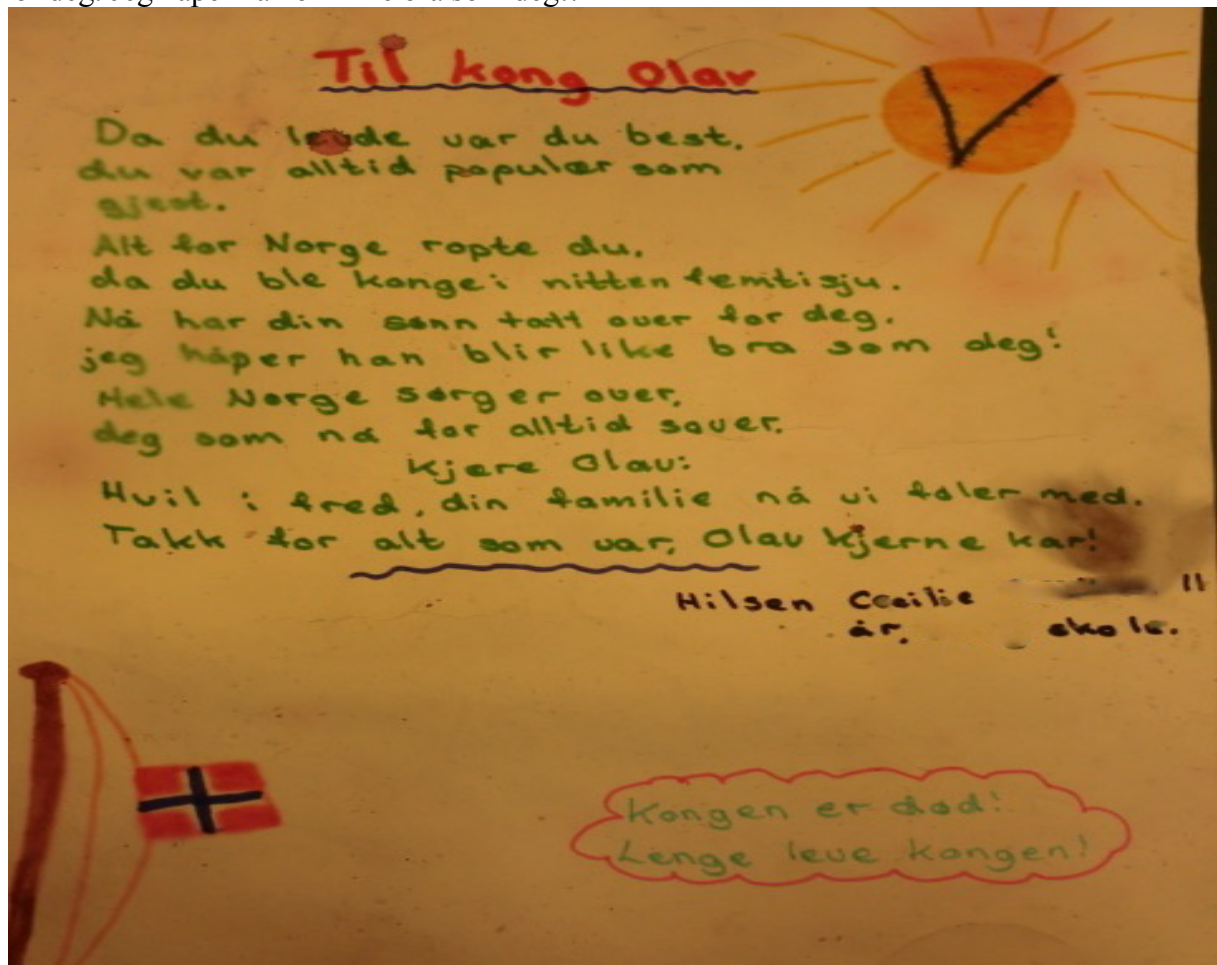 Til kong Olav
V
Da du levde var du best,
du var alltid populær som
gjest.
Alt for Norge ropte du,
da du ble konge i nitten femtisju.
Nå har din sønn tatt over for deg,
jeg håper han blir like bra som deg!
Hele Norge sørger over,
deg som nå for alltid sover.
Kjære Olav:
Hvil i fred, din familie nå vi føler med.
Takk for alt som var, Olav kjerne kar!
Hilsen Cecilie 11
år, skole.
Kongen er død!
Lenge leve kongen!